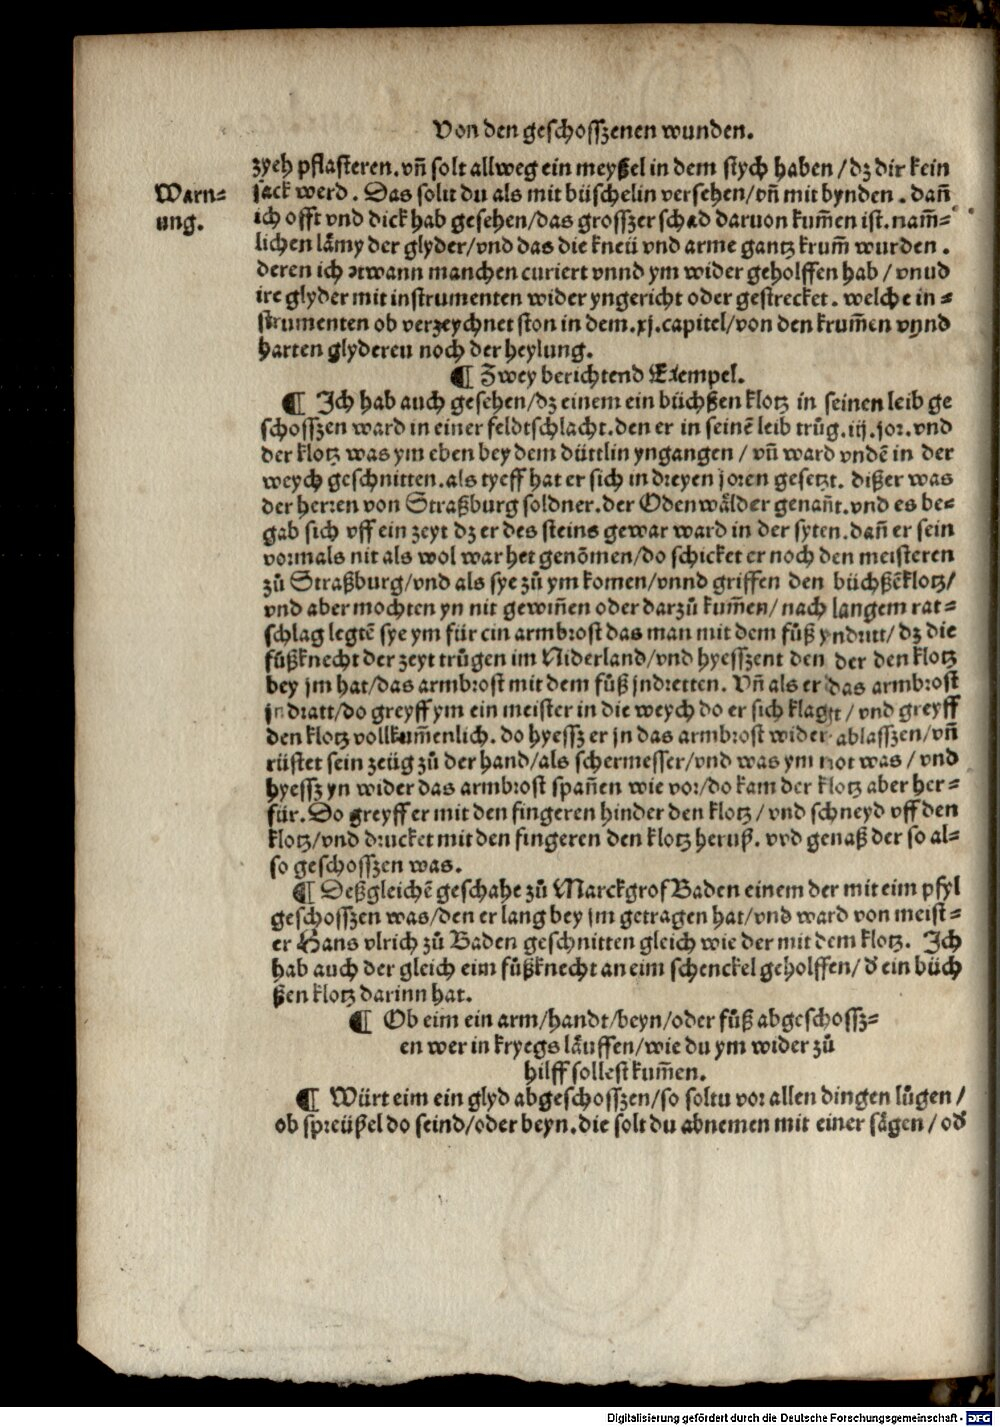 Von den geschosszenen wunden.
zyeh pflasteren. vñ solt allweg ein meyßel in dem stych haben / dz dir kein
Warn=
sack werd. Das solu du als mit büschelin versehen / vñ mit bynden. dañ
ung.
ich offt vnd dick hab gesehen / das grosszer schad daruon kum̃en ist. nam̃=
lichen lämy der glyder / vnd das die kneü vnd arme gantz krum̃ wurden.
deren ich etwann manchen curiert vnnd ym wider geholffen hab / vnud
ire glyder mit instrumenten wider yngericht oder gestrecket. welche in=
strumenten ob verzeychnet ston in dem .xj. capitel / von den krum̃en vnnd
harten glyderen noch der heylung.
¶ Zwey berichtend Exempel.
¶ Ich hab auch gesehen / dz einem ein büchßen klotz in seinen leib ge
schosszen ward in einer feldtschlacht. den er in seinē leib trůg .iij. jor. vnd
der klotz was ym eben bey dem düttlin yngangen / vñ ward vndē in der
weych geschnitten. als tyeff hat er sich in dreyen joren gesetzt. dißer was
der herren von Straßburg soldner. der Odenwälder genañt. vnd es be=
gab sich vff ein zeyt dz er des steins gewar ward in der syten. dañ er sein
vormals nit als wol war het genōmen / do schicket er noch den meisteren
zů Straßburg / vnd als sye zů ym komen / vnnd griffen den büchßēklotz /
vnd aber mochten yn nit gewiñen oder darzů kum̃en / nach langem rat=
schlag legtē sye ym für ein armbrost das man mit dem fůß yndritt / dz die
fůßknecht der zeyt trůgen im Niderland / vnd hyesszent den der den klotz
bey jm hat / das armbrost mit dem fůß jndretten. Vñ als er das armbrost
jndratt / do greyff ym ein meister in die weych do er sich klagt / vnd greyff
den klotz vollkum̃enlich. do hyessz er jn das armbrost wider ablasszen / vñ
rüstet sein zeüg zů der hand / als schermesser / vnd was ym not was / vnd
hyessz yn wider das armbrost spañen wie vor / do kam der klotz aber her=
für. Do greyff er mit den fingeren hinder den klotz / vnd schneyd vff den
klotz / vnd drucket mit den fingeren den klotz heruß. vnd genaß der so al=
so geschosszen was.
¶ Deßgleichē geschahe zů Marckgrof Baden einem der mit eim pfyl
geschosszen was / den er lang bey jm getragen hat / vnd ward von meist=
er Hans vlrich zů Baden geschnitten gleich wie der mit dem klotz. Ich
hab auch der gleich eim fůßknecht an eim schenckel geholffen / d̄ ein büch
ßen klotz darinn hat.
¶ Ob eim ein arm / handt / beyn / oder fůß abgeschossz=
en wer in kryegs läuffen / wie du ym wider zů
hilff sollest kum̃en.
¶ Würt eim ein glyd abgeschosszen / so soltu vor allen dingen lůgen /
ob spreüßel do seind / oder beyn. die solt du abnemen mit einer sägen / od̄
Digitalisierung gefördert durch die Deutsche Forschungsgemeinschaft - DFG